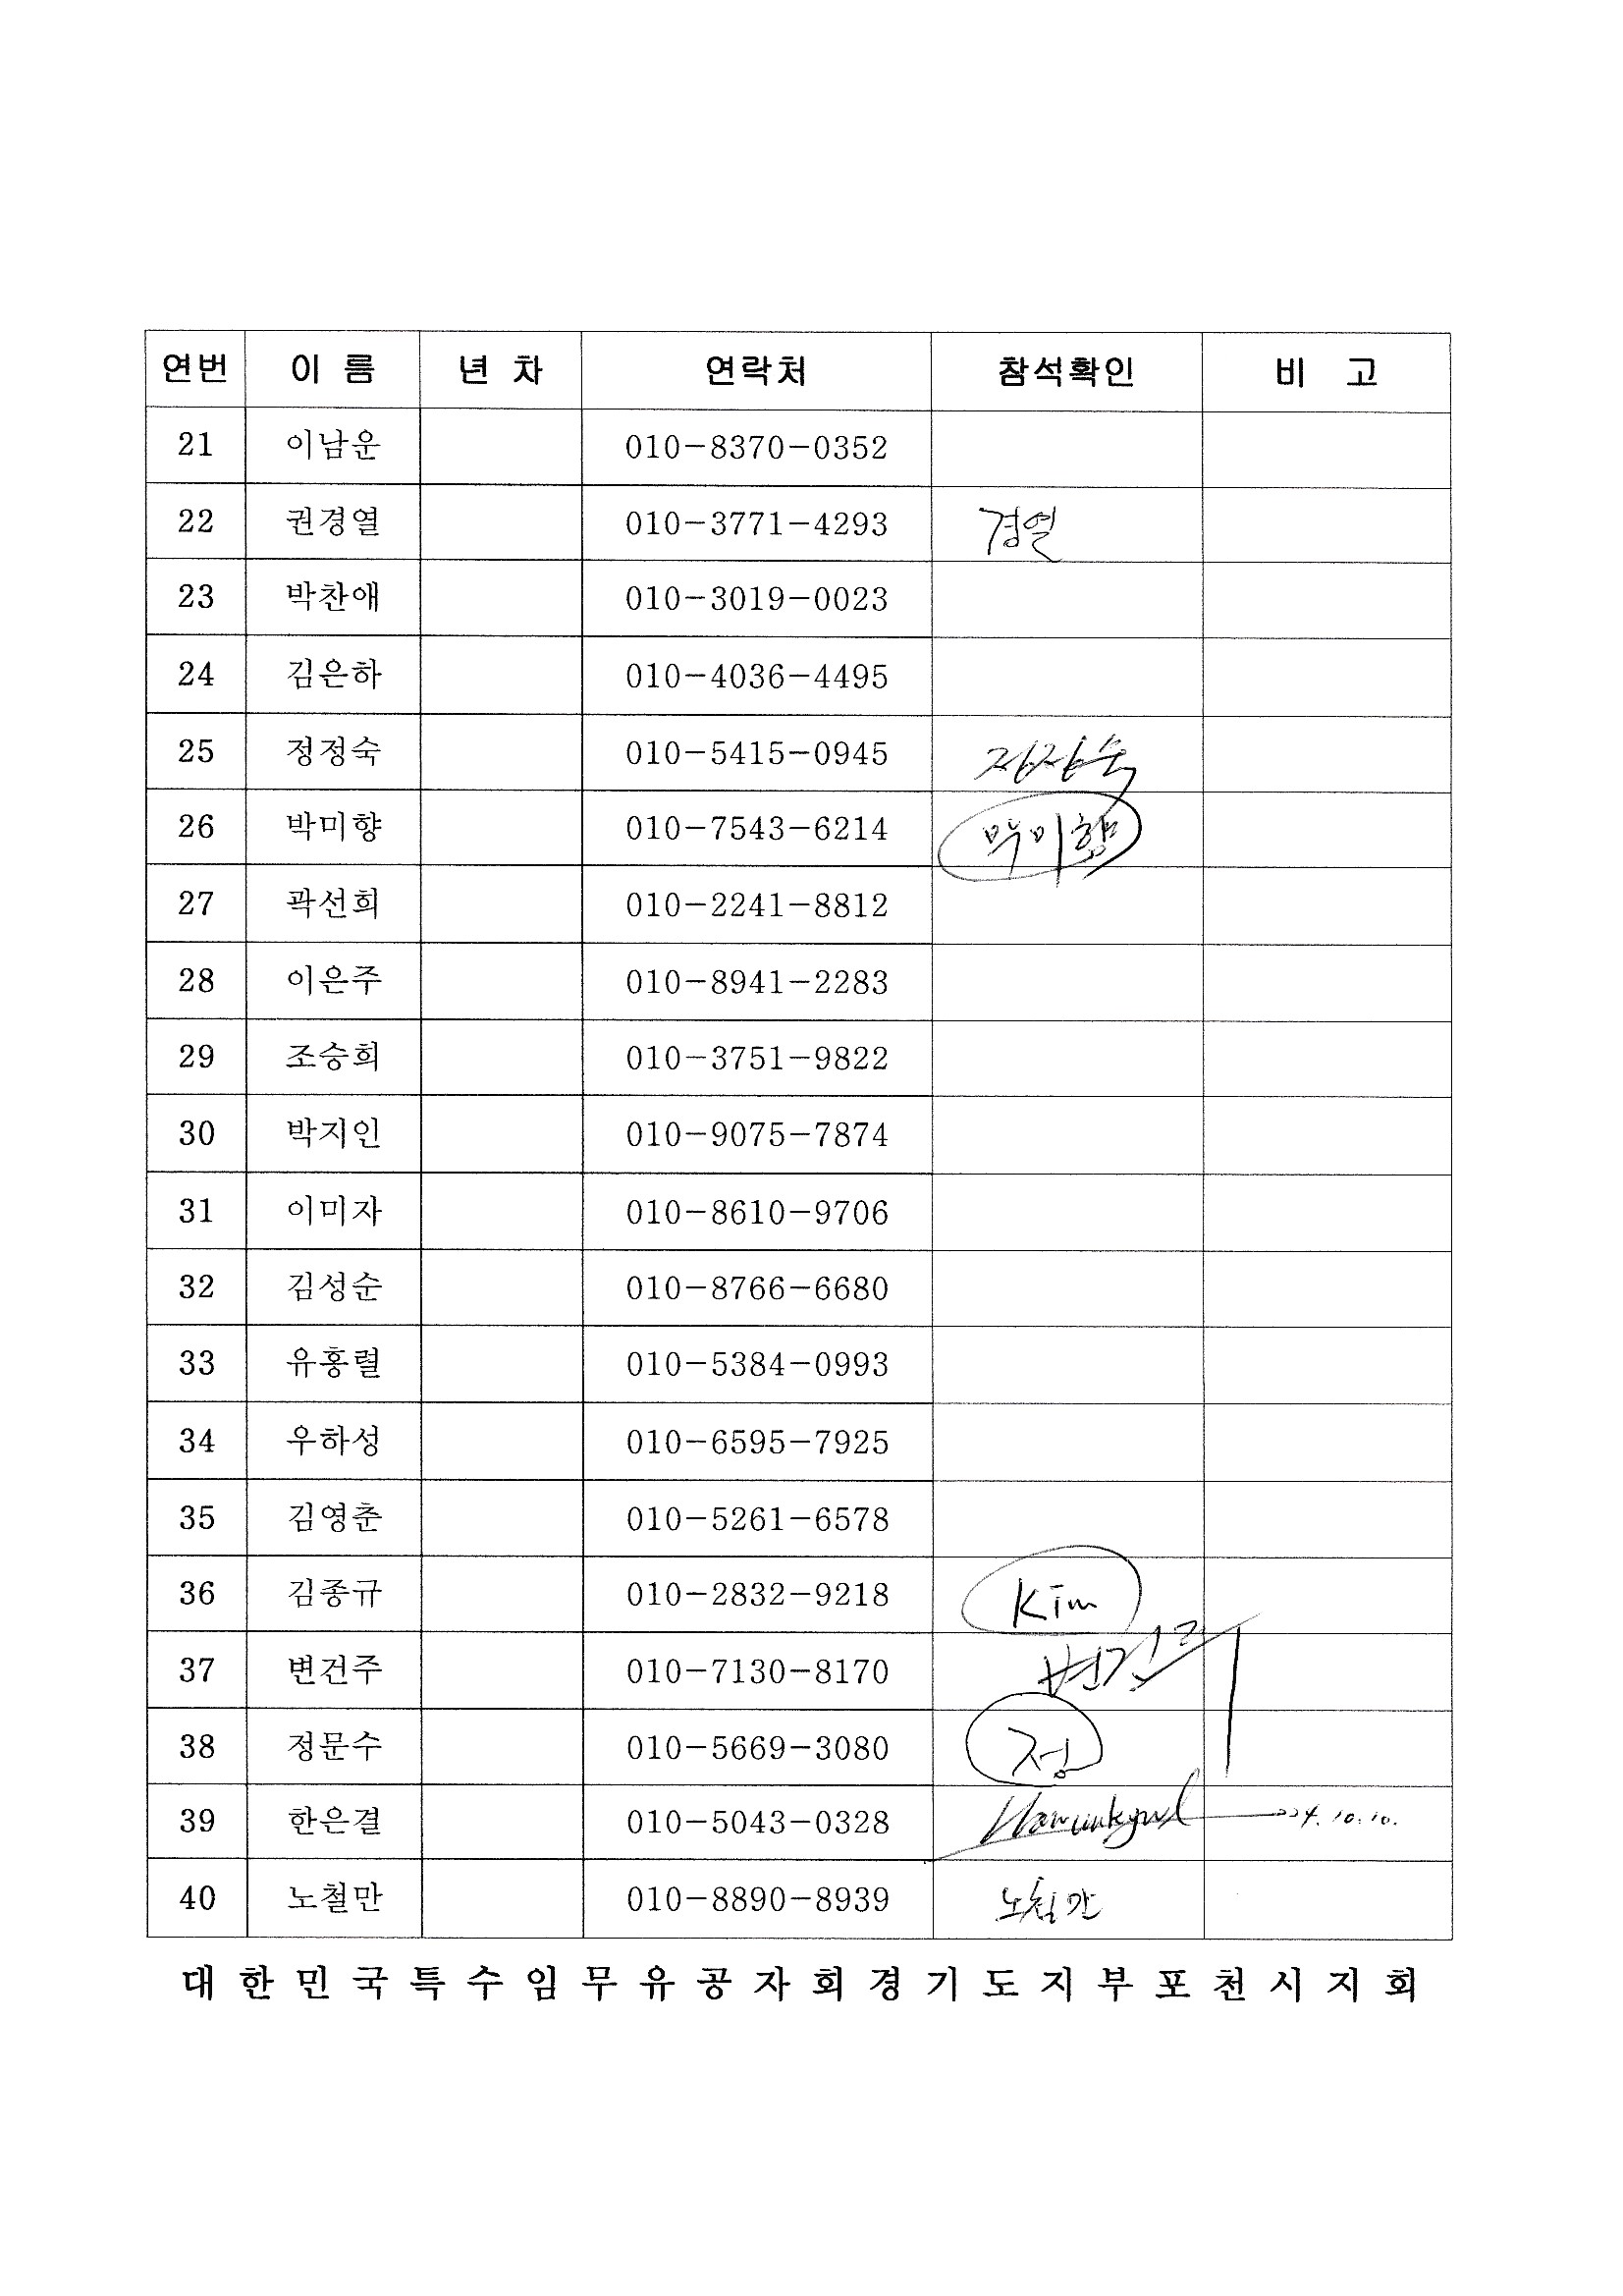 연번 이 름 년 차 연락처 참석확인 비 고
21 이남운 010-8370-0352
22 권경열 010-3771-4293 경열
23 박찬애 010-3019-0023
24 김은하 010-4036-4495
25 정정숙 010-5415-0945 정정숙
26 박미향 010-7543-6214 박미향
27 곽선희 010-2241-8812
28 이은주 010-8941-2283
29 조승희 010-3751-9822
30 박지인 010-9075-7874
31 이미자 010-8610-9706
32 김성순 010-8766-6680
33 유홍렬 010-5384-0993
34 우하성 010-6595-7925
35 김영춘 010-5261-6578
36 김종규 010-2832-9218 Kim
37 변건주 010-7130-8170 변건주
38 정문수 010-5669-3080 정
39 한은결 010-5043-0328 10.10.
40 노철만 010-8890-8939 노철만
대한민국특수임무유공자회경기도지부포천시지회